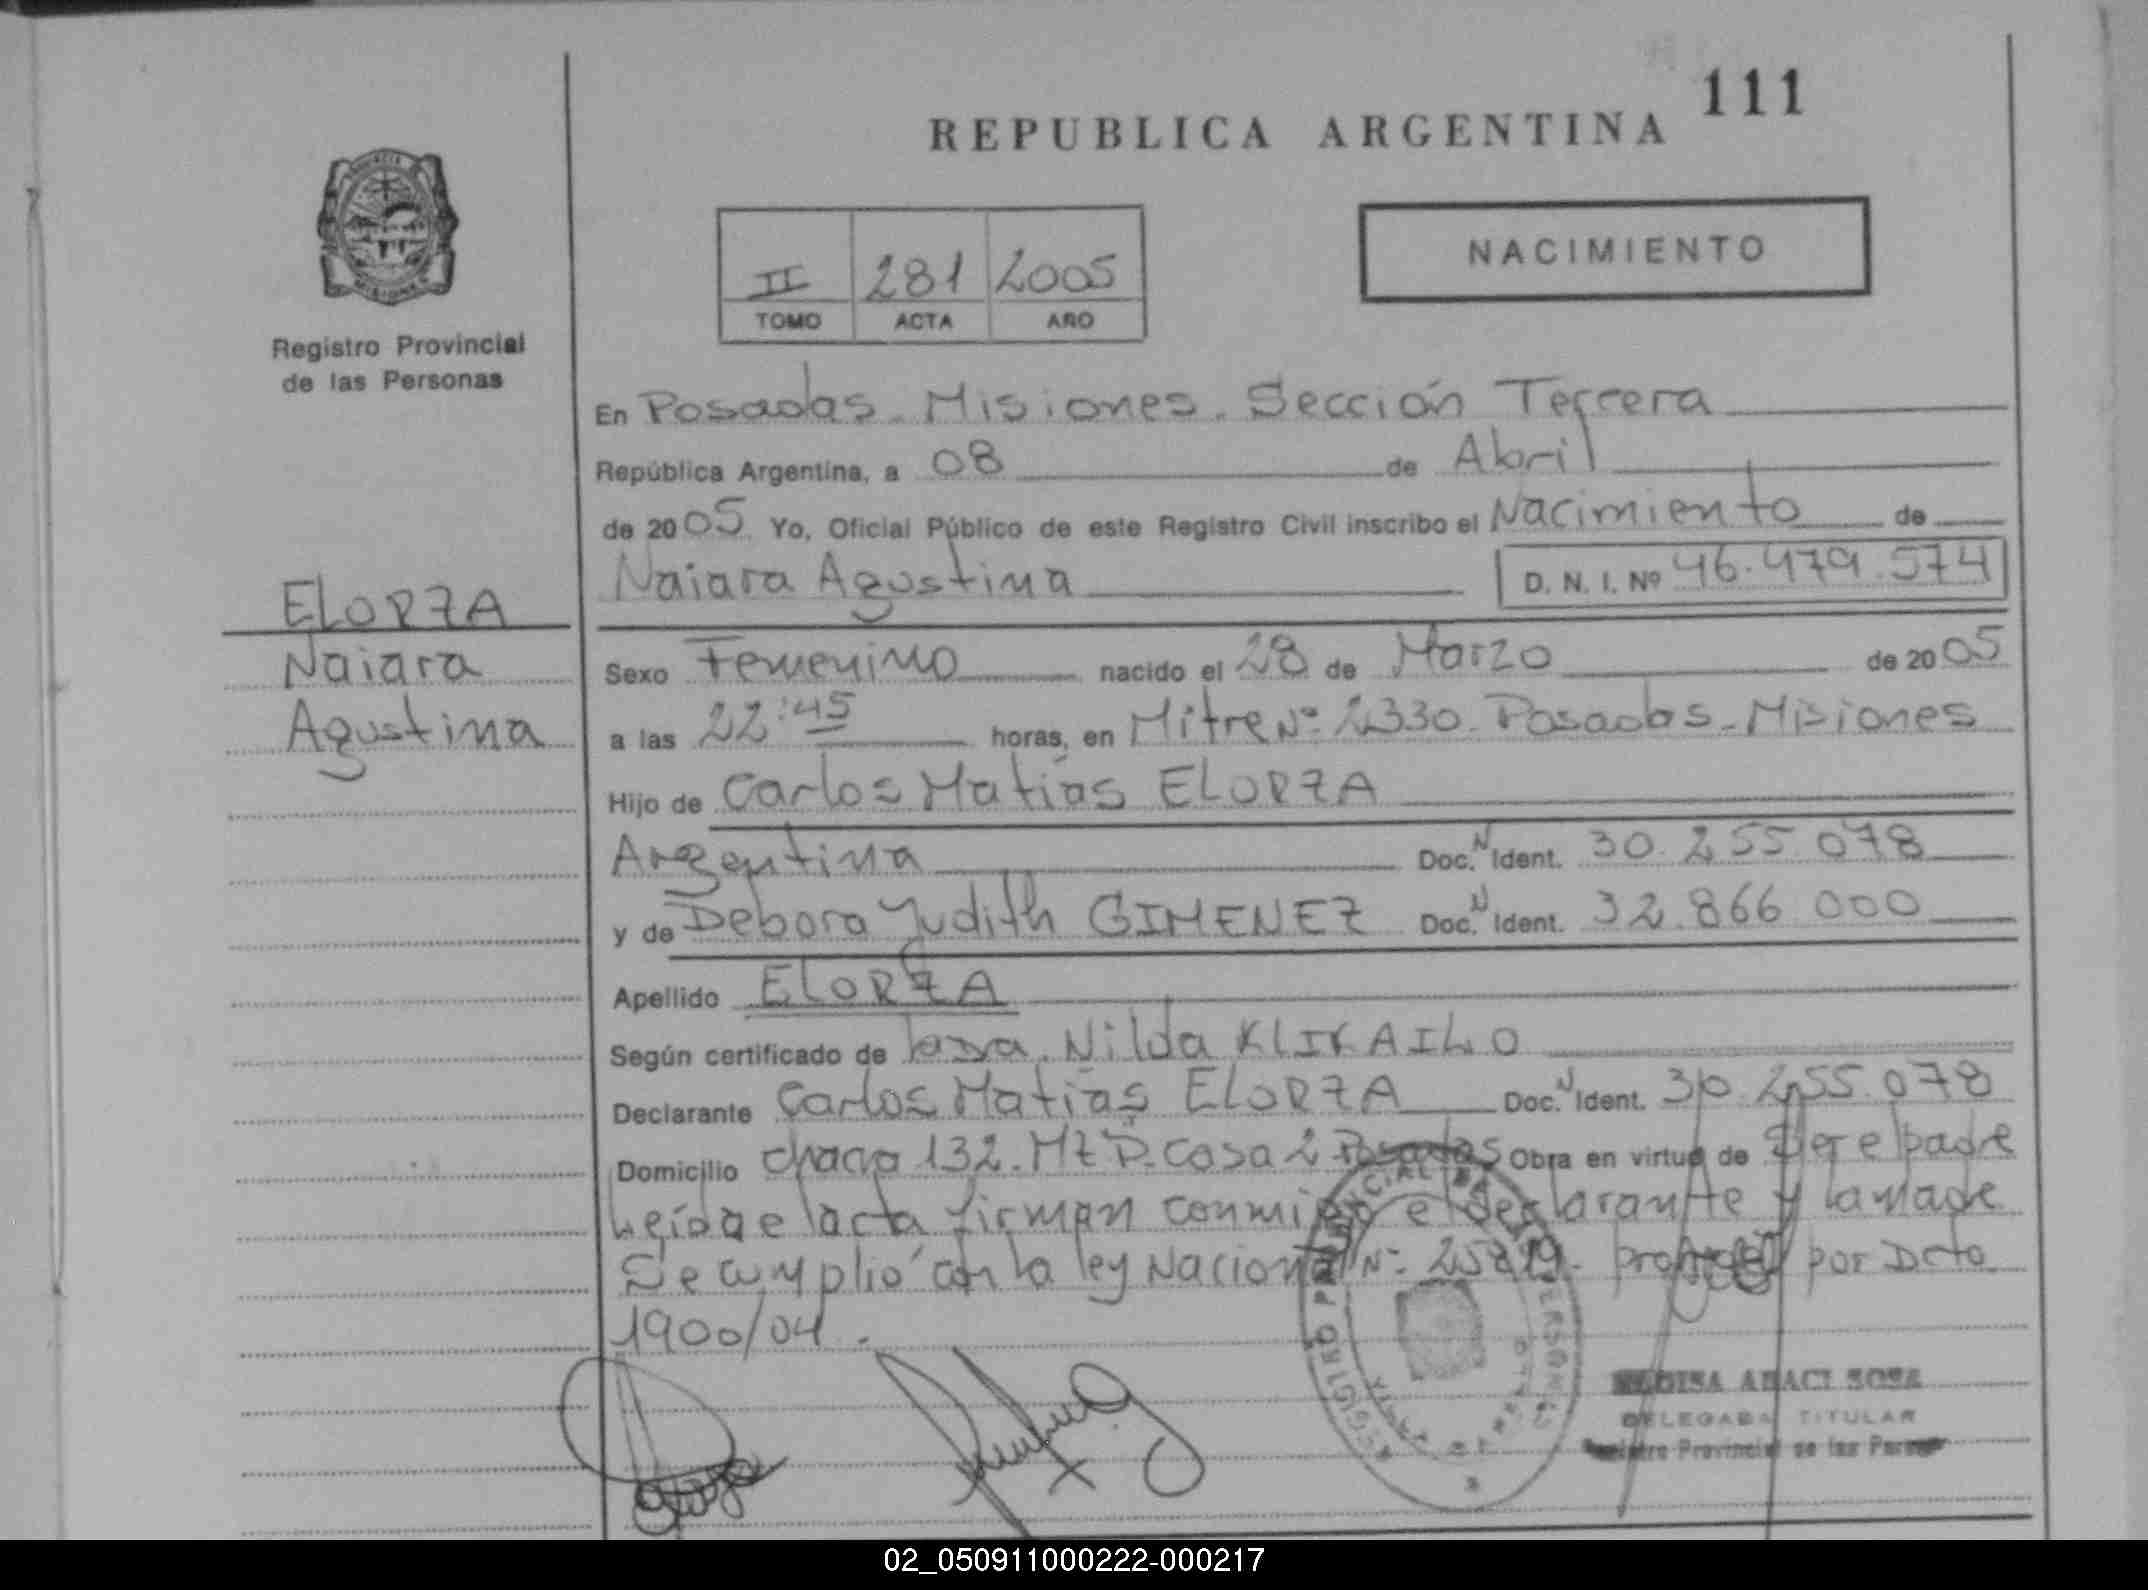 111
REPUBLICA ARGENTINA
NACIMIENTO
II 281 2005
TOMO ACTA AÑO
MISIONES
Registro Provincial
de las Personas
En Posadas - Misiones. Sección Tercera
República Argentina, a 08 de Abril
de 2005 Yo, Oficial Público de este Registro Civil inscribo el Nacimiento de
Naiara Agustina D. N. I. Nº 46.479.574
ELORZA
Naiara
Agustina
Sexo Femenino nacido el 28 de Marzo de 2005
a las 22:45 horas, en Mitre Nº 2330. Posadas - Misiones
Hijo de Carlos Matías ELORZA
Argentina Doc. N Ident. 30.255.078
y de Debora Judith GIMENEZ Doc. N Ident. 32.866.000
Apellido ELORZA
Según certificado de Nilda
Declarante Carlos Matías ELORZA Doc. N Ident. 30.255.078
Domicilio chacra 132. Mz D. Casa 2 Posadas Obra en virtud de Ser el padre
Leída el acta firman conmigo el declarante y la madre
Se cumplió con la ley Nacional Nº por Dcto
1900/04.
REGISTRO PROVINCIAL DE LAS PERSONAS
SOSA
DELEGADA TITULAR
Registro Provincial de las Personas
02_050911000222-000217